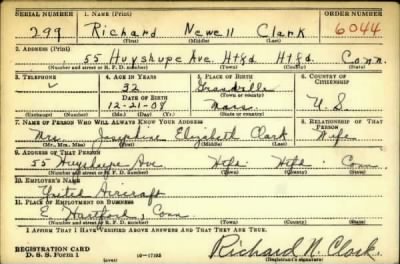 SERIAL NUMBER 1. NAME (Print) ORDER NUMBER
299 Richard Newell Clark 6044
(First) (Middle) (Last)
2. ADDRESS (Print)
55 Huyshupe Ave. Htfd. Htfd. Conn.
(Number and street or R. F. D. number) (Town) (County) (State)
3. TELEPHONE 4. AGE IN YEARS 5. PLACE OF BIRTH 6. COUNTRY OF CITIZENSHIP
32
DATE OF BIRTH (Town or county)
12-21-08 Mass. U. S.
(Exchange) (No.) (Mo.) (Day) (Yr.) (State or country)
7. NAME OF PERSON WHO WILL ALWAYS KNOW YOUR ADDRESS 8. RELATIONSHIP OF THAT PERSON
Mrs. Josephine Elizabeth Clark Wife
(Mr., Mrs., Miss) (First) (Middle) (Last)
9. ADDRESS OF THAT PERSON
55 Huyshupe Ave Htfd. Htfd. Conn.
(Number and street or R. F. D. number) (Town) (County) (State)
10. EMPLOYER'S NAME
United Aircraft
11. PLACE OF EMPLOYMENT OR BUSINESS
E. Hartford, Conn
(Number and street or R. F. D. number) (Town) (County) (State)
I AFFIRM THAT I HAVE VERIFIED ABOVE ANSWERS AND THAT THEY ARE TRUE.
REGISTRATION CARD
D. S. S. Form 1 (over) 16-17105 Richard N. Clark.
(Registrant's signature)